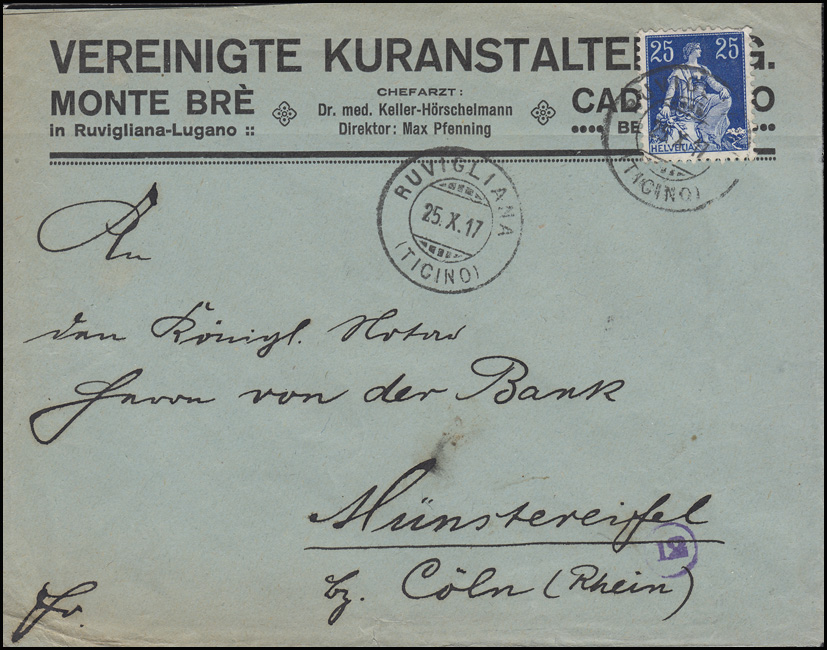 VEREINIGTE KURANSTALTE G.
MONTE BRÈ
in Ruvigliana-Lugano ::
CHEFARZT:
Dr. med. Keller-Hörschelmann
Direktor: Max Pfenning
CAD O
BE
25 25
HELVETIA
(TICINO)
RUVIGLIANA
25.X.17
(TICINO)
An
den Königl. Notar
Herrn von der Bank
Münstereifel
bz. Cöln (Rhein)
Fr.